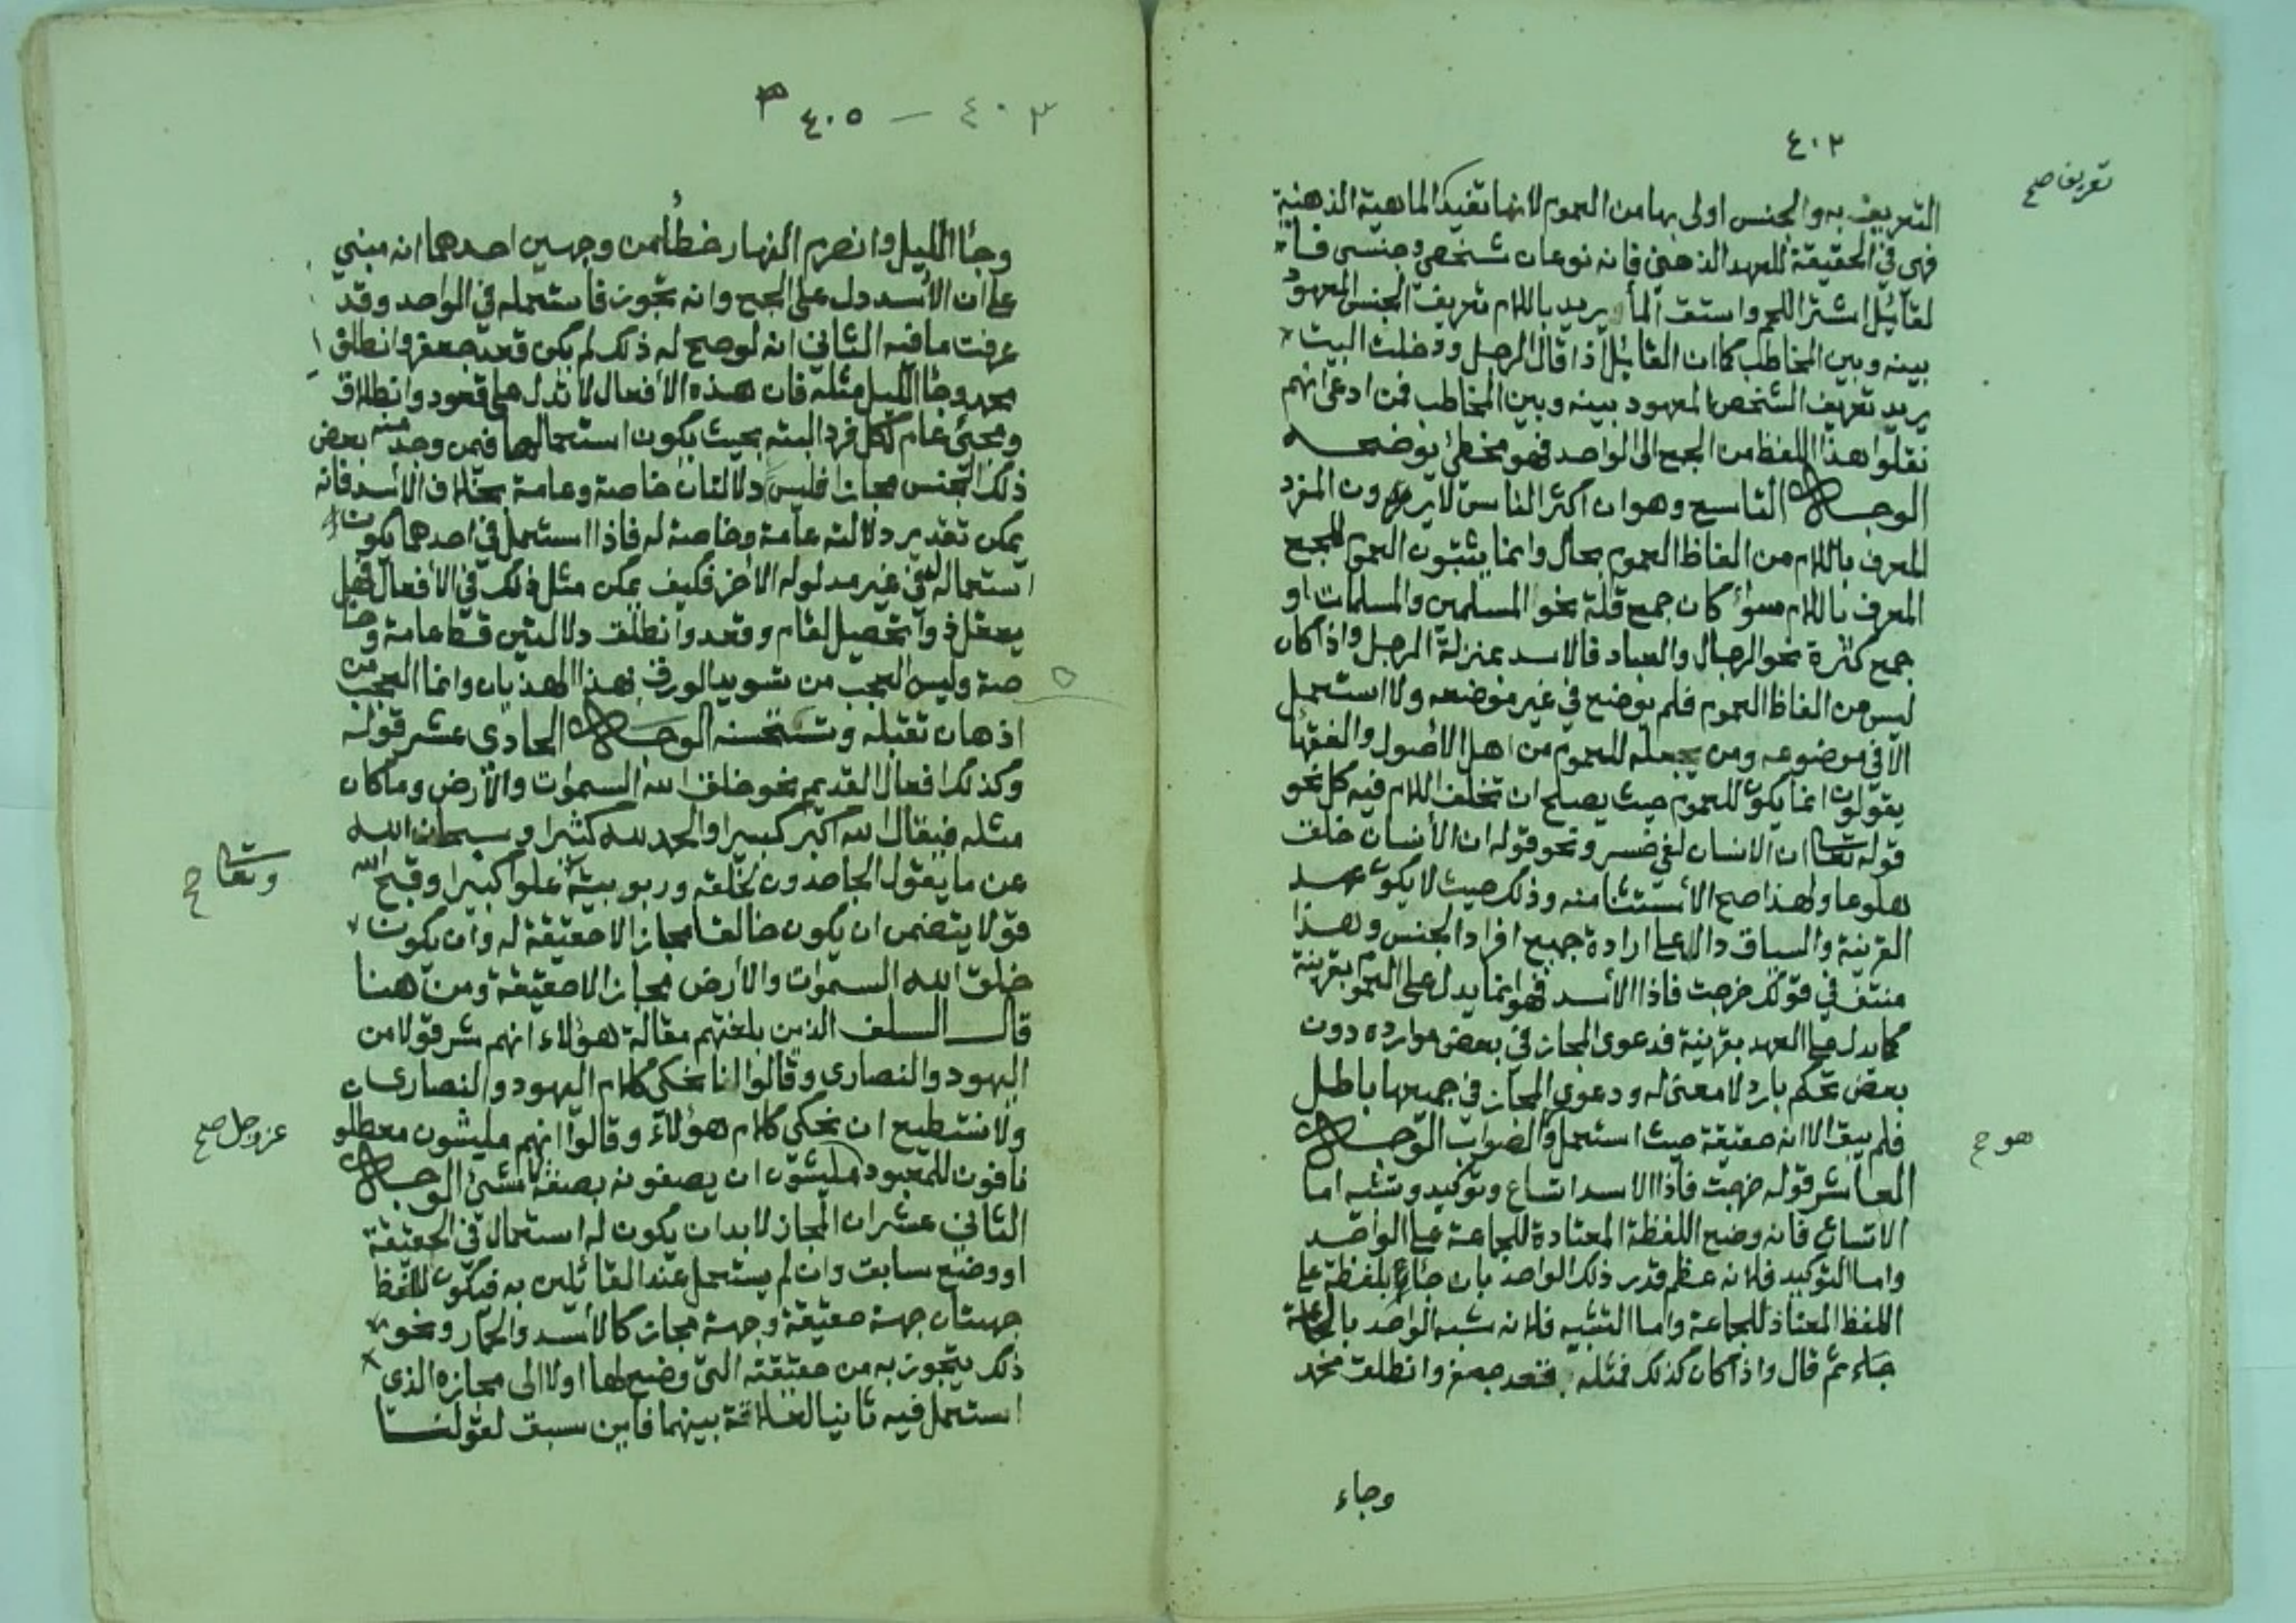 ٤٠٢
تعريف صح
التعريف به والجنس اولى بها من العموم لانها تفيد الماهية الذهنية
فهي في الحقيقة للعهد الذهني فانه نوعان شخصي وجنسي فا
لقائل اشتر اللحم واستق المأ يريد باللام تعريف الجنس المعهود
بينه وبين المخاطب كما ان القائل اذا قال الرجل ودخلت البيت
يريد تعريف الشخص المعهود بينه وبين المخاطب فمن ادعى انهم
نقلوا هذا اللفظ من الجمع الى الواحد فهو مخطئ يوضحه
الوجه التاسع وهو ان اكثر الناس لا يرون المفرد
المعرف باللام من الفاظ العموم بحال وانما يثبتون العموم للجمع
المعرف باللام سواء كان جمع قلة نحو المسلمين والمسلمات او
جمع كثرة نحو الرجال والعباد فالاسد بمنزلة الرجل واذا كان
ليس من الفاظ العموم فلم يوضع في غير موضعه ولا استعمل
الا في موضوعه ومن يجعله للعموم من اهل الأصول والفقها
يقولون انما يكون للعموم حيث يصلح ان تخلف اللام فيه كل نحو
قوله تعا ان الانسان لفي خسر ونحو قوله ان الأنسان خلق
هلوعا ولهذا صح الأستثنا منه وذلك حيث لا يكون عهد
القرينة والسياق دالا على ارادة جميع افراد الجنس وهذا
منتف في قولك خرجت فاذا الأسد فهو انما يدل على العموم بقرينة
كما يدل على العهد بقرينة فدعوى المجاز في بعض موارده دون
بعض تحكم بارد لا معنى له ودعوى المجاز في جميعها باطل
فلم يبق الا انه حقيقة حيث استعمل والصواب الوجه
هو ح
العاشر قوله خرجت فاذا الاسد اتساع وتوكيد وتشبيه اما
الاتساع فانه وضع اللفظة المعتادة للجماعة على الواحد
واما التوكيد فلانه عظم قدر ذلك الواحد بان جاء بلفظة على
اللفظ المعتاد للجماعة واما التشبيه فلانه شبه الواحد بالجماعة
جاء ثم قال واذا كان كذلك فمثله قعد جعفر وانطلق محمد
وجاء
٤٠٣ — ٤٠٥
وجأ الليل وانصرم النهار خطأ من وجهين احدهما انه مبني
على ان الأسد دل على الجمع وانه تجوز فاستعمله في الواحد وقد
عرفت ما فيه الثاني انه لو صح له ذلك لم يكن قعد جعفر وانطلق
محمد وجأ الليل مثله فان هذه الافعال لا تدل على قعود وانطلاق
ومجيئ عام لكل فرد البته بحيث يكون استعمالها فيمن وجد منه بعض
ذلك الجنس مجازا فليس دلالتان خاصة وعامة بخلاف الاسد فانه
يمكن تقدير دلالته عامة وخاصة له فاذا استعمل في احدهما يكون
استعماله في غير مدلوله الاخر فكيف يمكن مثل ذلك في الأفعال فهل
يعقل ذوا تحصيل لقام وقعد وانطلق دلالتين قط عامة وخا
صة وليس العجب من تسويد الورق بهذا الهذيان وانما العجب من
اذهان تقبله وتستحسنه الوجه الحادي عشر قوله
وكذلك افعال القديم نحو خلق الله السموات والأرض وما كان
مثله فيقال الله اكبر كبيرا والحمد لله كثيرا وسبحان الله
وتعا ح
عن ما يقول الجاحدون لخلقه وربوبيته علوا كبيرا وقبح الله
قولا يتضمن ان يكون خالقا مجازا لا حقيقة له وان يكون
خلق الله السموات والأرض مجازا لا حقيقة ومن هنا
قال السلف الذين بلغتهم مقالة هؤلاء انهم شر قولا من
اليهود والنصارى وقالوا انا نحكي كلام اليهود والنصارى
ولا نستطيع ان نحكي كلام هؤلاء وقالوا انهم مليشون معطلو
عز وجل صح
نافون للمعبود مليشون ان يصفونه بصفة لا شئ الوجه
الثاني عشر ان المجاز لا بد ان يكون له استعمال في الحقيقة
او وضع سابق وان لم يستعمل عند القائلين به فيكون للفظ
جهتان جهة حقيقة وجهة مجاز كالأسد والحمار ونحو
ذلك يتجوز به من حقيقته التي وضع لها اولا الى مجازه الذي
استعمل فيه ثانيا لعلاقة بينهما فاين سبق لقولنا